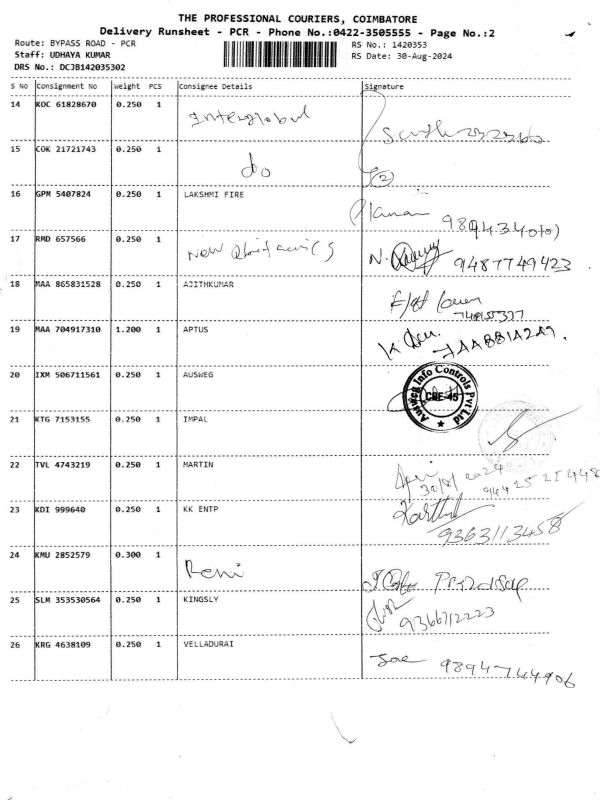 THE PROFESSIONAL COURIERS, COIMBATORE
Delivery Runsheet - PCR - Phone No.:0422-3505555 - Page No.:2
Route: BYPASS ROAD - PCR RS No.: 1420353
Staff: UDHAYA KUMAR RS Date: 30-Aug-2024
DRS No.: DCJB142035302
S No Consignment No Weight PCS Consignee Details Signature
14 KOC 61828670 0.250 1
15 COK 21721743 0.250 1 do 2
16 GPM 5407824 0.250 1 LAKSHMI FIRE
17 RMD 657566 0.250 1 New N. 9487749423
18 MAA 865831528 0.250 1 AJITHKUMAR
19 MAA 704917310 1.200 1 APTUS
20 IXM 506711561 0.250 1 AUSWEG Ausweg Info Controls Pvt Ltd CBE-45
21 KTG 7153155 0.250 1 IMPAL
22 TVL 4743219 0.250 1 MARTIN 30/8/2024
23 KDI 999640 0.250 1 KK ENTP Karthik 9363113458
24 KMU 2852579 0.300 1
25 SLM 353530564 0.250 1 KINGSLY 9366712223
26 KRG 4638109 0.250 1 VELLADURAI Joe 9894744906